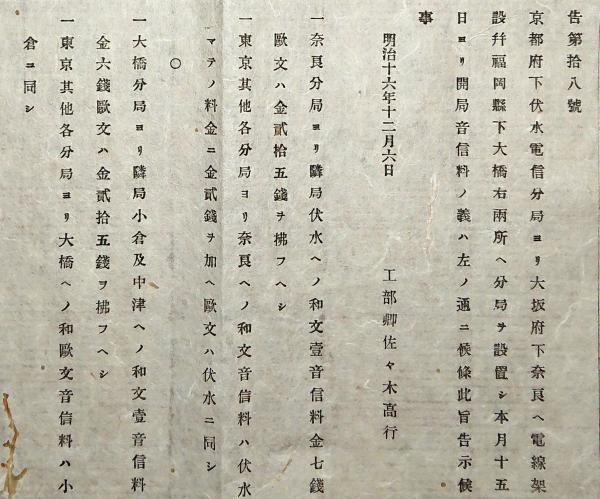 告第拾八號
京都府下伏水電信分局ヨリ大坂府下奈良ヘ電線架
設幷福岡縣下大橋右兩所ヘ分局ヲ設置シ本月十五
日ヨリ開局音信料ノ義ハ左ノ通ニ候條此旨告示候
事
明治十六年十二月六日　工部卿佐々木高行
一奈良分局ヨリ隣局伏水ヘノ和文壹音信料金七錢
歐文ハ金貳拾五錢ヲ拂フヘシ
一東京其他各分局ヨリ奈良ヘノ和文音信料ハ伏水
マテノ料金ニ金貳錢ヲ加ヘ歐文ハ伏水ニ同シ
○
一大橋分局ヨリ隣局小倉及中津ヘノ和文壹音信料
金六錢歐文ハ金貳拾五錢ヲ拂フヘシ
一東京其他各分局ヨリ大橋ヘノ和歐文音信料ハ小
倉ニ同シ